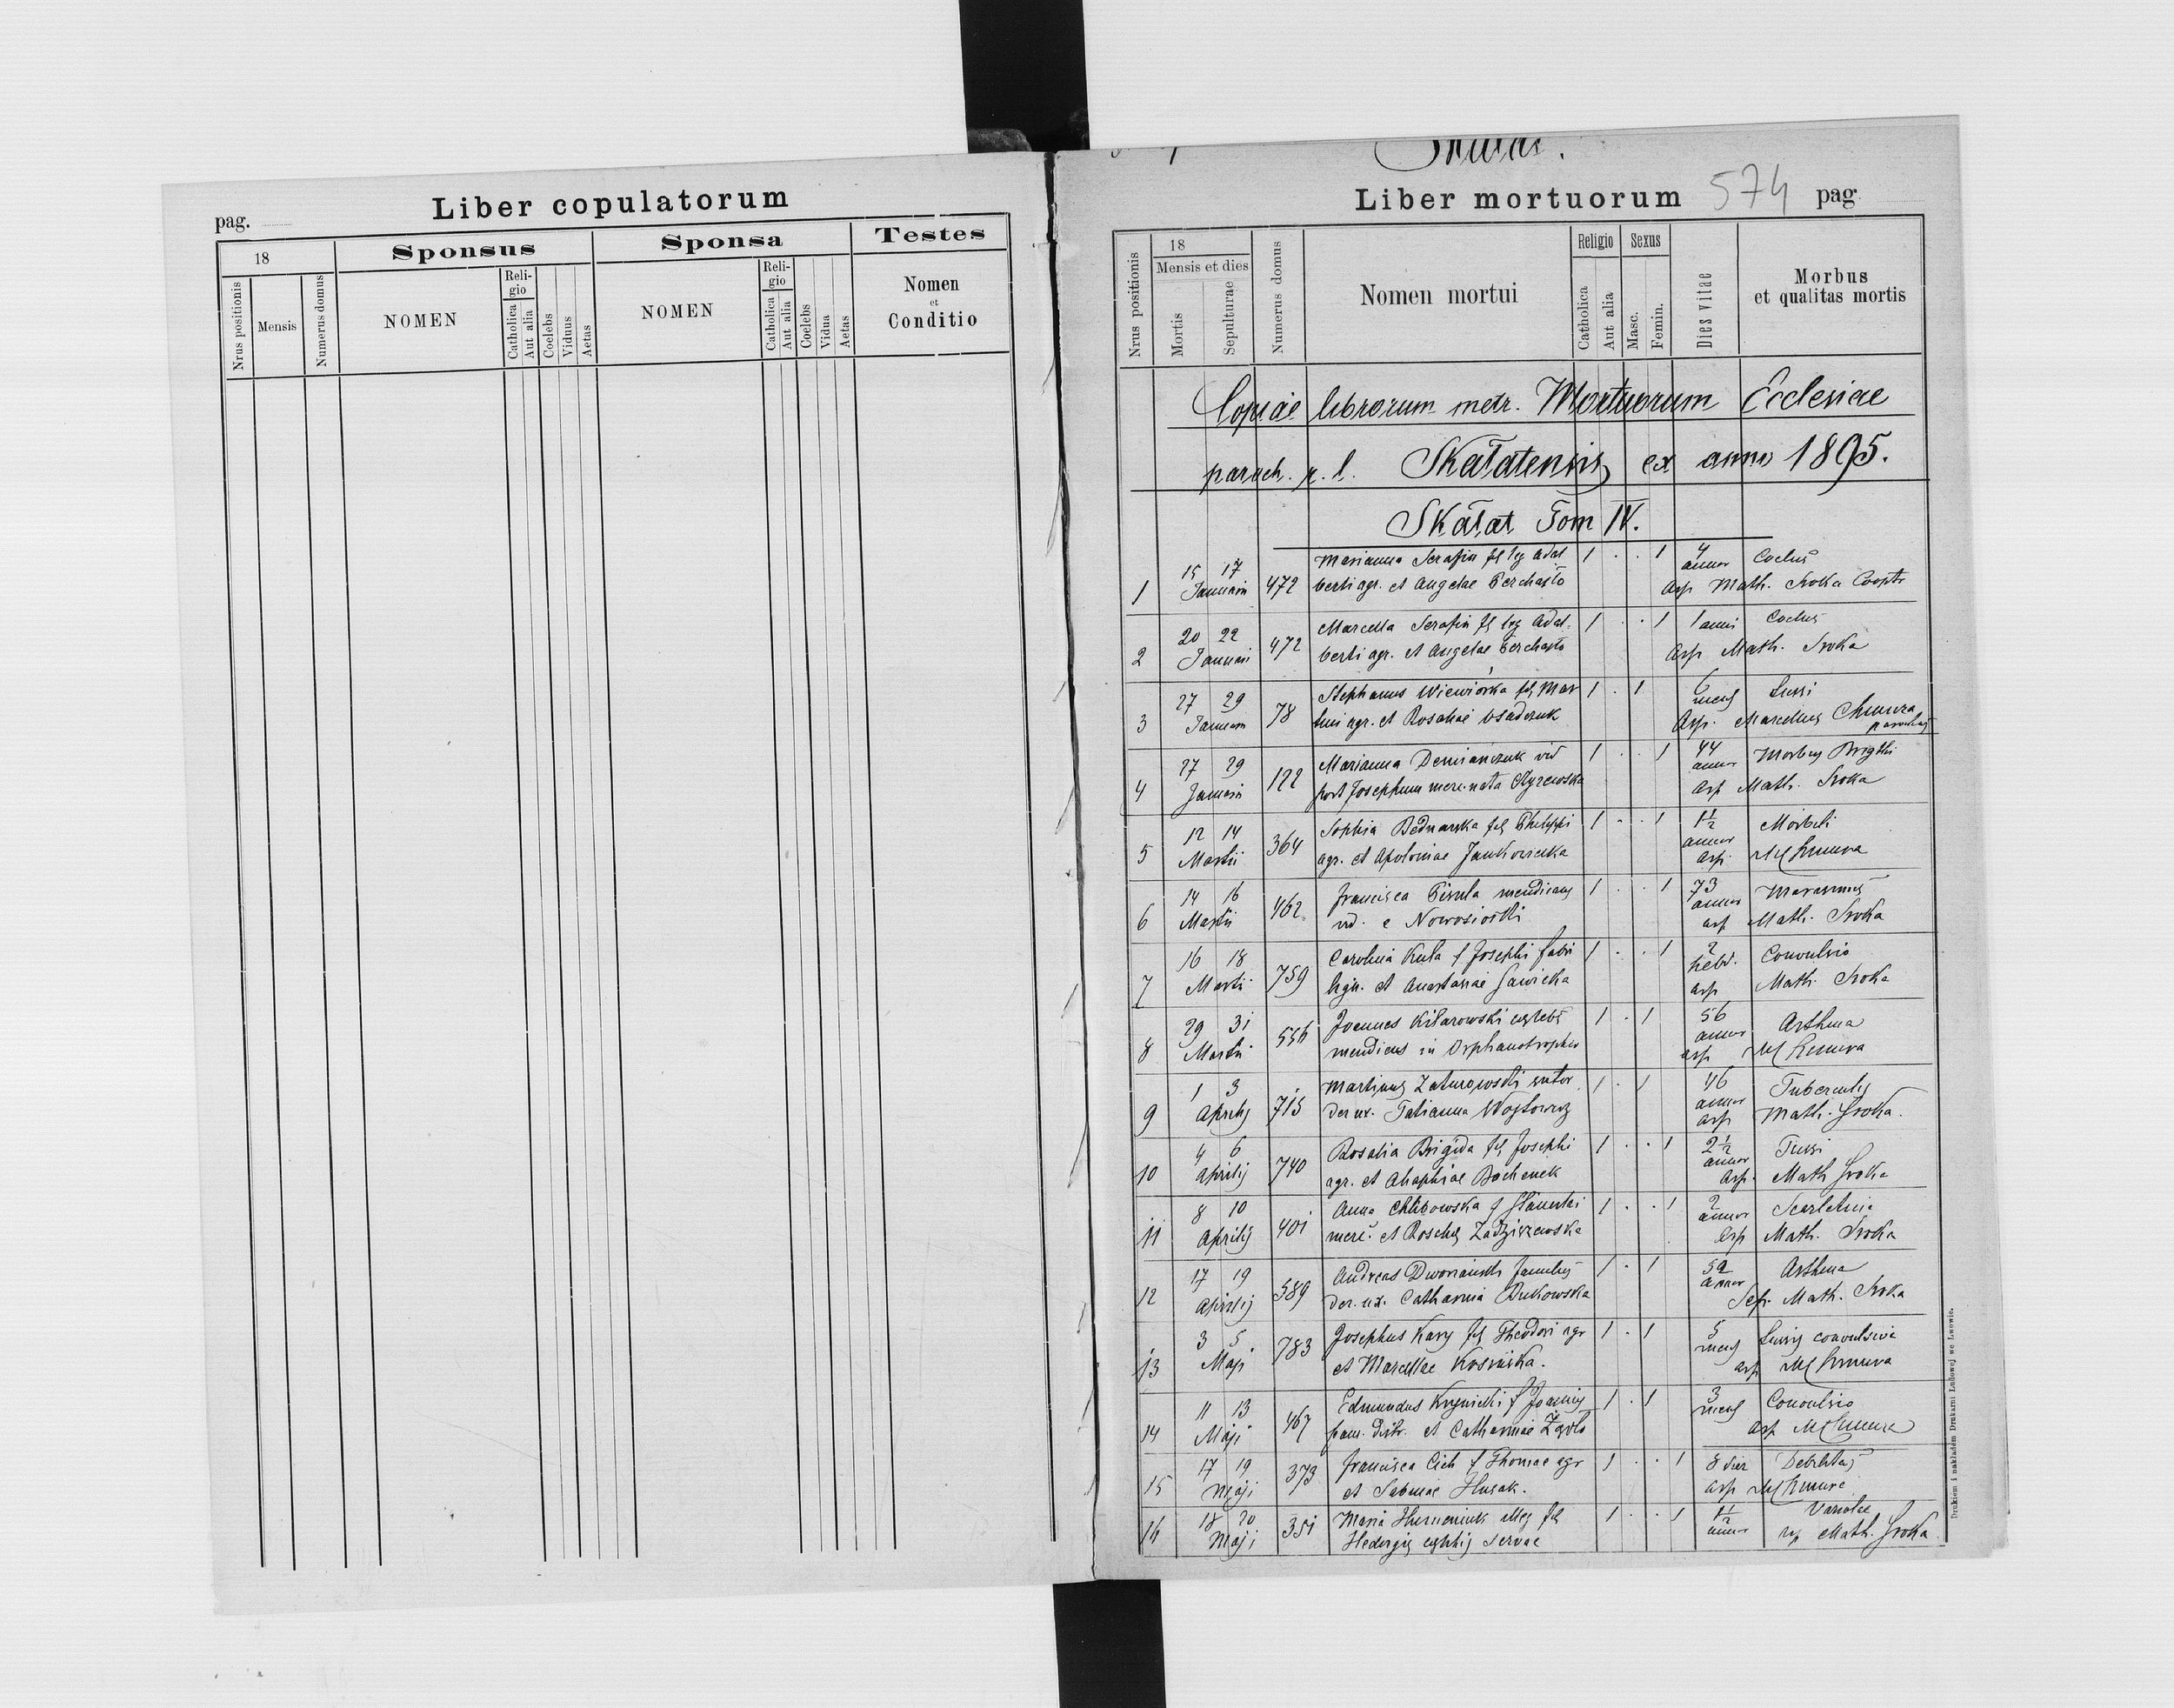 Liber copulatorum
pag.
18
Sponsus
Sponsa
Testes
Nrus positionis
Mensis
Numerus domus
NOMEN
Reli-
gio
Catholica
Aut alia
Coelebs
Viduus
Aetas
NOMEN
Reli-
gio
Catholica
Aut alia
Coelebs
Vidua
Aetas
Nomen
et
Conditio
Liber mortuorum 574 pag
Nrus positionis
18
Mensis et dies
Mortis
Sepulturae
Numerus domus
Nomen mortui
Religio
Catholica
Aut alia
Sexus
Masc.
Femin.
Dies vitae
Morbus
et qualitas mortis
Copiae librorum metr. Mortuorum Ecclesiae
paroch. r. l. Skałatensis ex anno 1895.
Skałat Tom IV.
Marianna Serafin fil leg Adal 1 . . 1 4
15 17 annor
1 Januarii 472 berti agr. et Angelae Asp Math. Sroka
Marcella Serafin fil leg Adal- 1 . . 1 1 anni
20 22
2 Januarii 472 berti agr. et Angelae Asp Math. Sroka
Stephanus Wiewiórka fil Mar 1 . 1 6 mens Tussi
27 29
3 Januarii 78 tini agr. et Rosaliae Osadczuk Asp. Marcellus Chmura
parochus
Marianna Demianczuk vid 1 . . 1 44 annor Morbus Brigthi
27 29
4 Januarii 122 post Josephum merc. nata Asp Math. Sroka
Sophia Bednarska fil Philippi 1 . . 1 1 1/2 annor Morbili
12 14
5 Martii 364 agr. et Apoloniae asp. M Chmura
Francisca mendicans 1 . . 1 73 annor Marasmus
14 16
6 Martii 462 vid. e Nowosiółki asp Math. Sroka
Carolina Kula f Josephi fabri 1 . . 1 2 hebd. Convulsio
16 18
7 Martii 759 lign. et Anastasiae Sawicka asp Math. Sroka
Joannes 1 . 1 56 annor Asthma
29 31
8 Martii 556 mendicus in Orphanotropheo asp M Chmura
Martinus Zaturowski sutor 1 . 1 46 annor Tuberculis
1 3
9 Aprilis 715 der ux. Tatianna Wojtowicz asp Math. Sroka.
Rosalia Brigida fil Josephi 1 . . 1 2 1/2 annor Tussi
4 6
10 Aprilis 740 agr. et Bochenek Asp. Math Sroka
Anna 1 . . 1 2 annor Scarlatina
8 10
11 Aprilis 401 merc. et Asp Math. Sroka
Andreas famulus 1 . 1 52 annor Asthma
17 19
12 Aprilis 589 der. ux. Catharina Bukowska Math. Sroka
Josephus Kary fil Theodori agr 1 . 1 5 mens Tussis convulsiva
3 5
13 Maji 783 et Marcellae asp M Chmura
Edmundus Krynicki f Joannis 1 . 1 3 mens Convulsio
11 13
14 Maji 467 et Catharinae asp M Chmura
Francisca Cich f Thomae agr 1 . . 1 8 dier Debilitas
17 19
15 Maji 373 et Sabinae Husak. asp M Chmura
Maria illeg fil 1 . . 1 1 1/2 annor Variolae
18 20
16 Maji 351 Hedvigis servae Math. Sroka
Drukiem i nakładem Drukarni Ludowej we Lwowie.